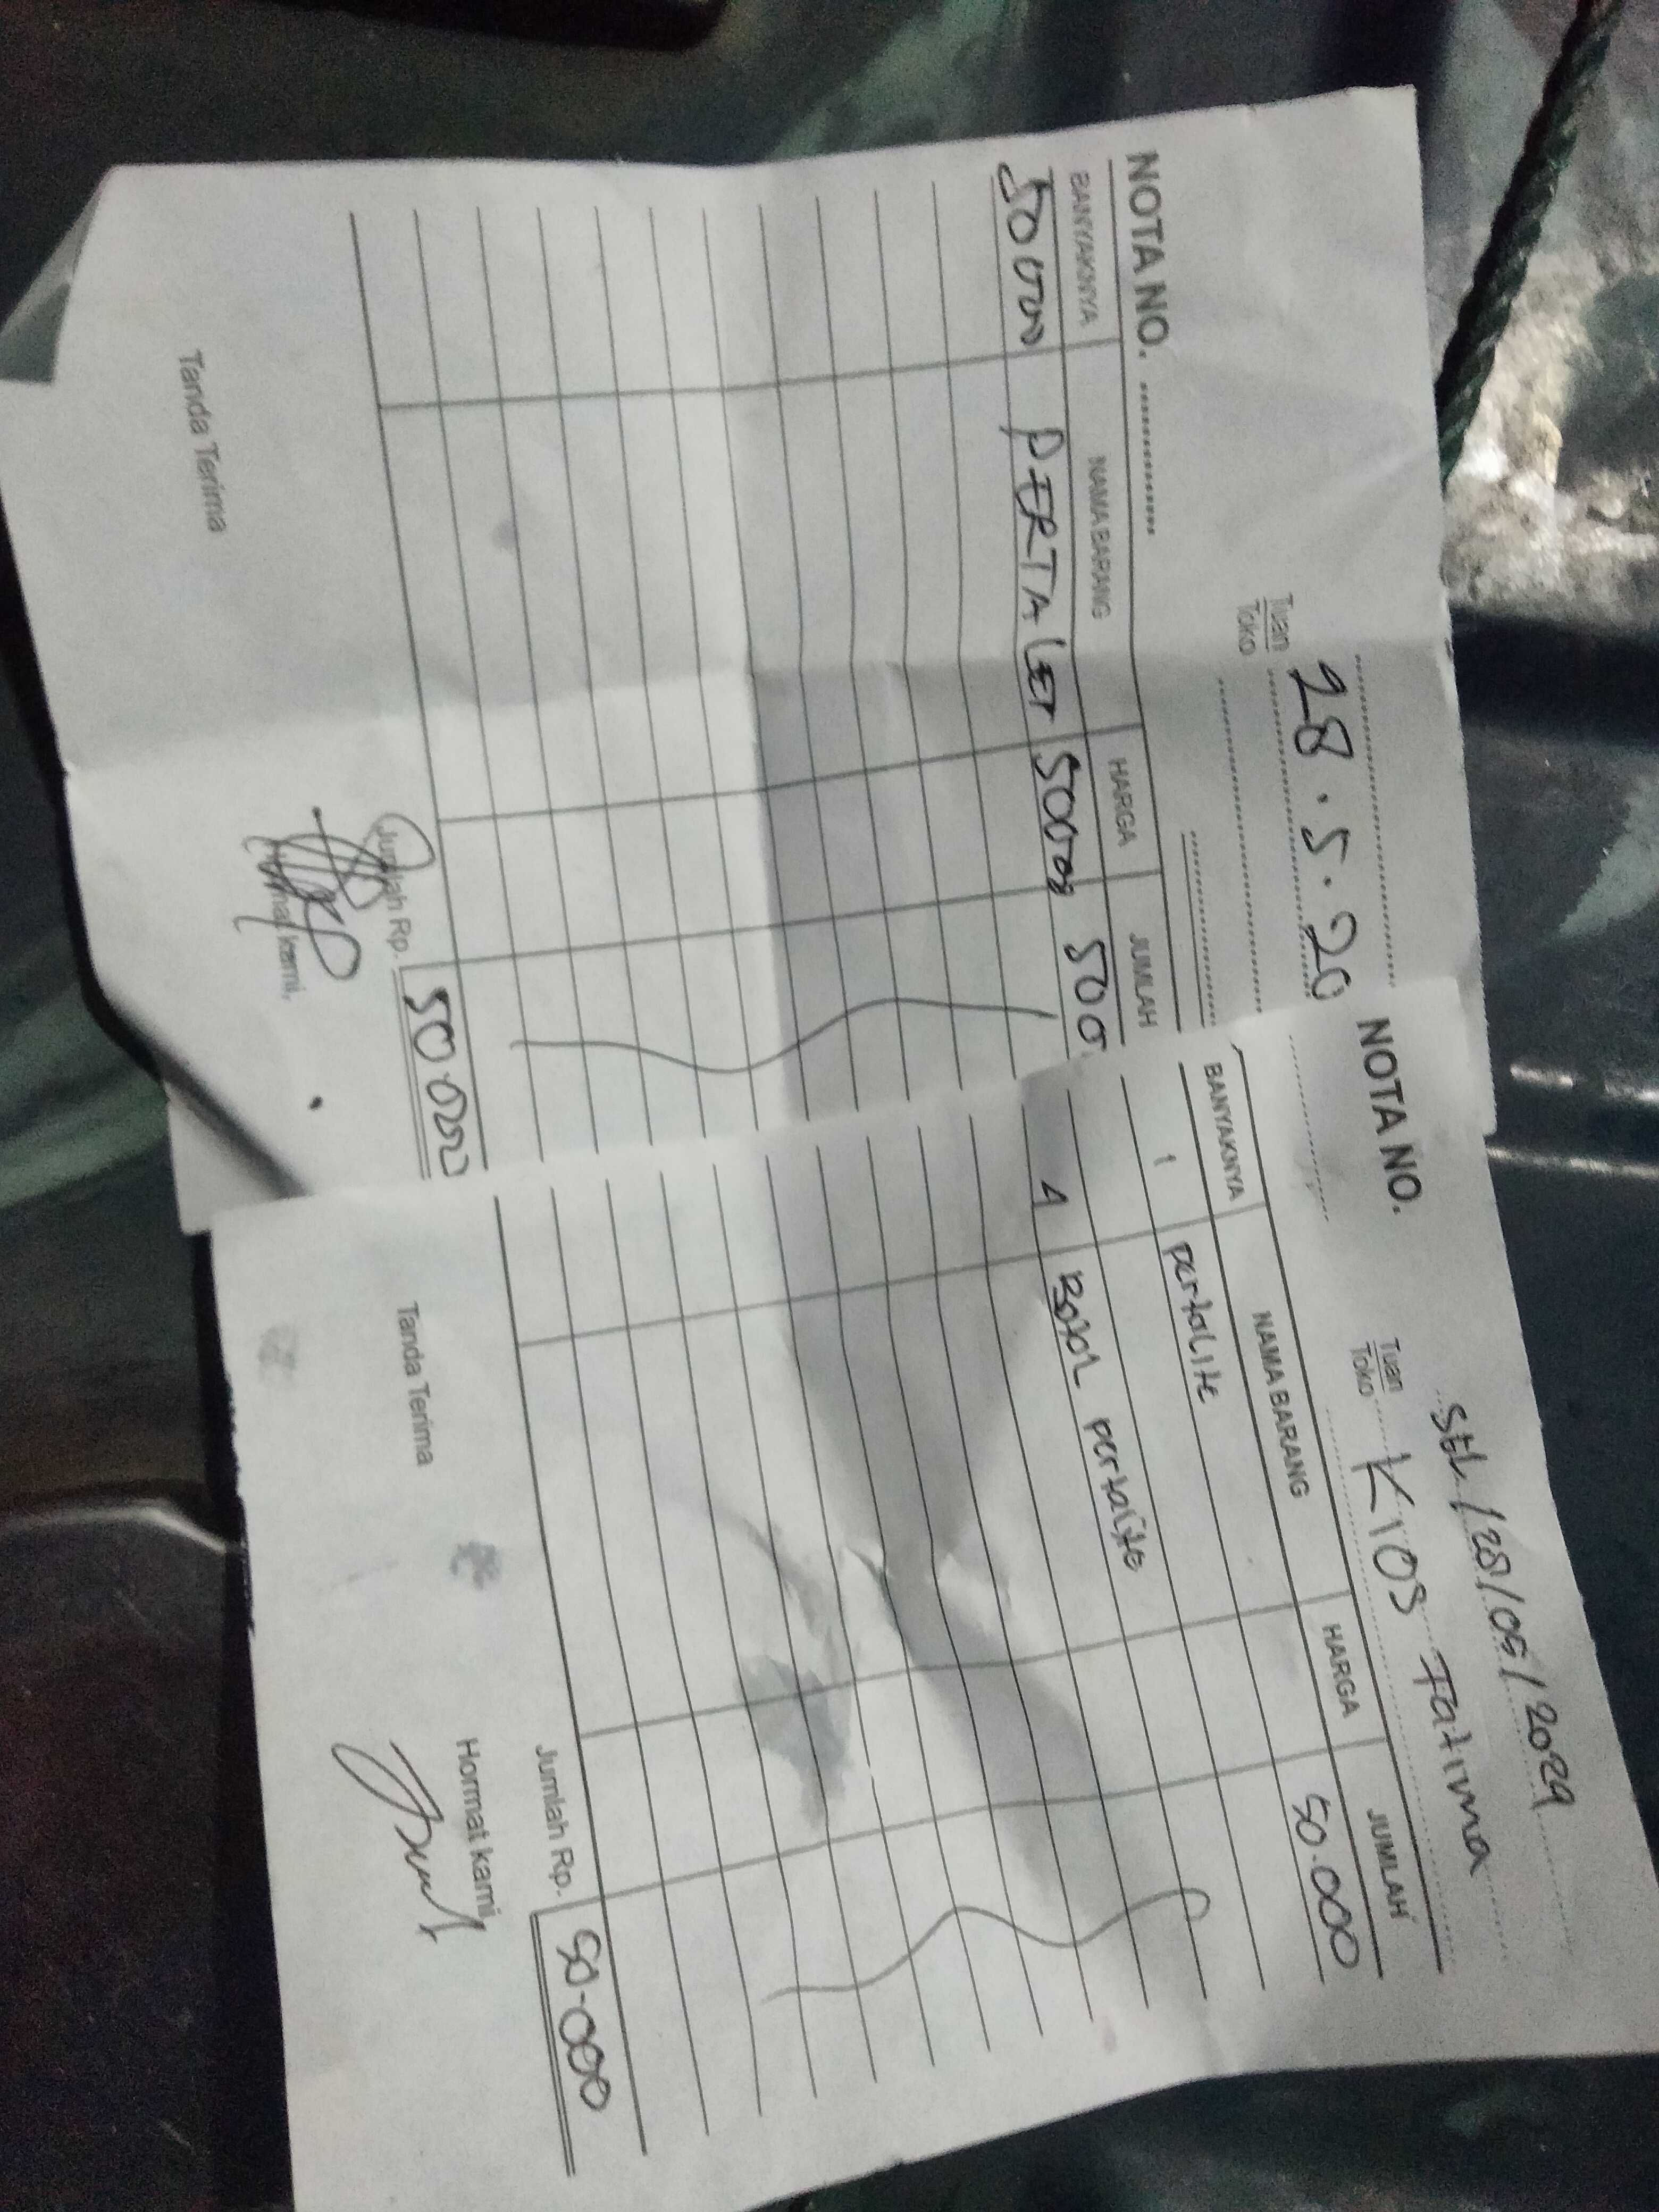 28.5.20
Tuan
Toko
NOTA NO.
BANYAKNYA NAMA BARANG HARGA JUMLAH
50000 PERTALET 50000 500
Jumlah Rp. 50.000
Tanda Terima Hormat kami,
Stl /28/05/2024
Tuan
Toko Kios Fatima
NOTA NO.
BANYAKNYA NAMA BARANG HARGA JUMLAH
50.000
1 pertalite
4 Botol pertalite
Jumlah Rp. 50.000
Tanda Terima Hormat kami,